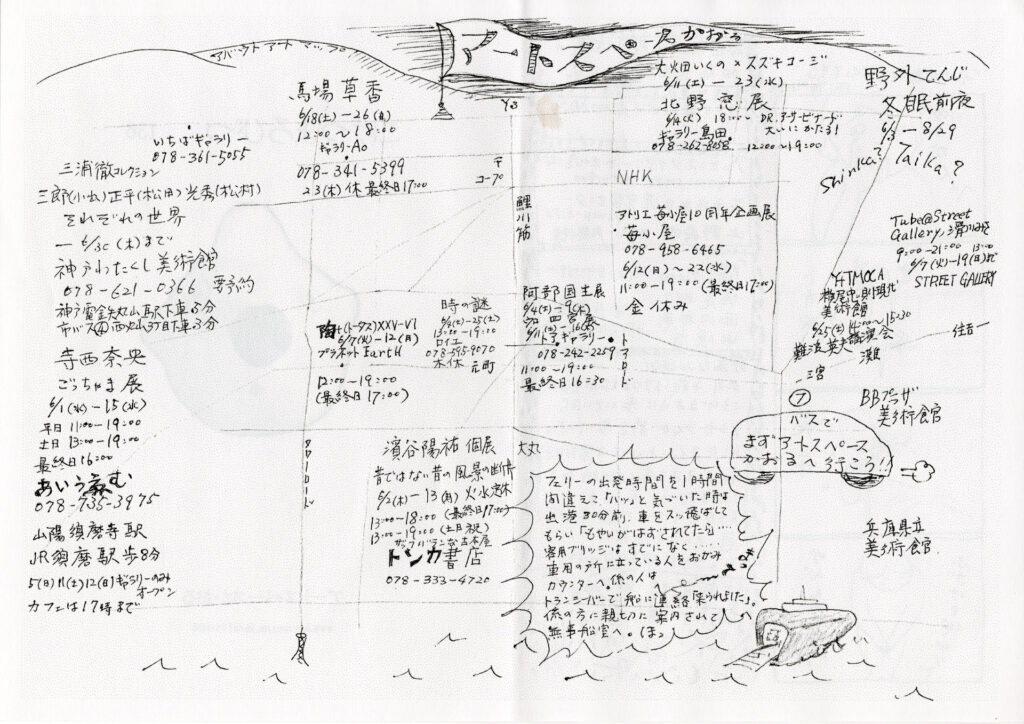 アバウト アート マップ
アートスペース かおる
馬場草香
6/18(土)ー26(日)
12:00〜18:00
ギャラリーAo
078-341-5399
23(木)休 最終日17:00
いちばギャラリー
078-361-5055
三浦徹コレクション
三郎(小出)正平(松田)光秀(松村)
それぞれの世界
ー6/30(木)まで
神戸わたくし美術館
078-621-0366 要予約
神戸電鉄丸山駅下車5分
市バス④西丸山3丁目下車3分
寺西奈央
ごっちゃま展
6/1(水)ー15(水)
平日 11:00ー19:00
土日 13:00ー19:00
最終日16:00
あいうゑむ
078-735-3975
山陽須磨寺駅
JR須磨駅歩8分
5(日)11(土)12(日)ギャラリーのみ
オープン
カフェは17時まで
陶+(トータス)XXV-VI
6/7(火)ー12(日)
プラネットEartH
12:00ー19:00
(最終日17:00)
時の謎
13:00ー19:00
ロイエ
078-595-9070
木休
元町
タワーロード
濱谷陽祐 個展
昔ではない昔の風景の断片
6/2(木)ー13(月)火水定休
13:00ー18:00(最終日17:00)
13:00ー19:00(土日祝)
トンカ書店
078-333-4720
大火田いくの×スズキコージ
6/11(土)ー23(木)
北野窓展
6/4(土) 18:00〜 DR.アーサービナード
大いにかたる!
ギャラリー島田
078-262-8058 12:00〜19:00
コープ
NHK
鯉川筋
アトリエ苺小屋10周年企画展
・苺小屋
078-958-6465
6/12(日)〜22(水)
11:00ー19:00(最終日17:00)
金 休み
阿部国生展
6/4(土)ー9(木)
トアギャラリー
078-242-2259
11:00ー19:00
最終日16:30
トアロード
大丸
野外てんじ
冬眠前夜
6/3ー8/29
Shinka?
Taika?
Tube@Street
Gallery
9:00ー21:00
6/7(火)ー19(日)まで
STREET GALLERY
Y+TMOCA
横尾忠則現代
美術館
6/25(土)14:00〜15:30
難波英夫講演会
灘
住吉ー
三宮
⑦
バスで
まずアートスペース
かおるへ行こう!!
BBプラザ
美術館
兵庫県立
美術館
フェリーの出発時間を1時間
間違えて「ハッ」と気づいた時は
出港30分前、車をスッ飛ばして
もらい「もやいがはずされてたら……
客用ブリッジはすでになく……
車用の所に立っている人をおがみ
カウンターへ。係の人は
トランシーバーで船に連絡「来られました」。
係の方に親切に案内されて
無事船室へ。ほっ